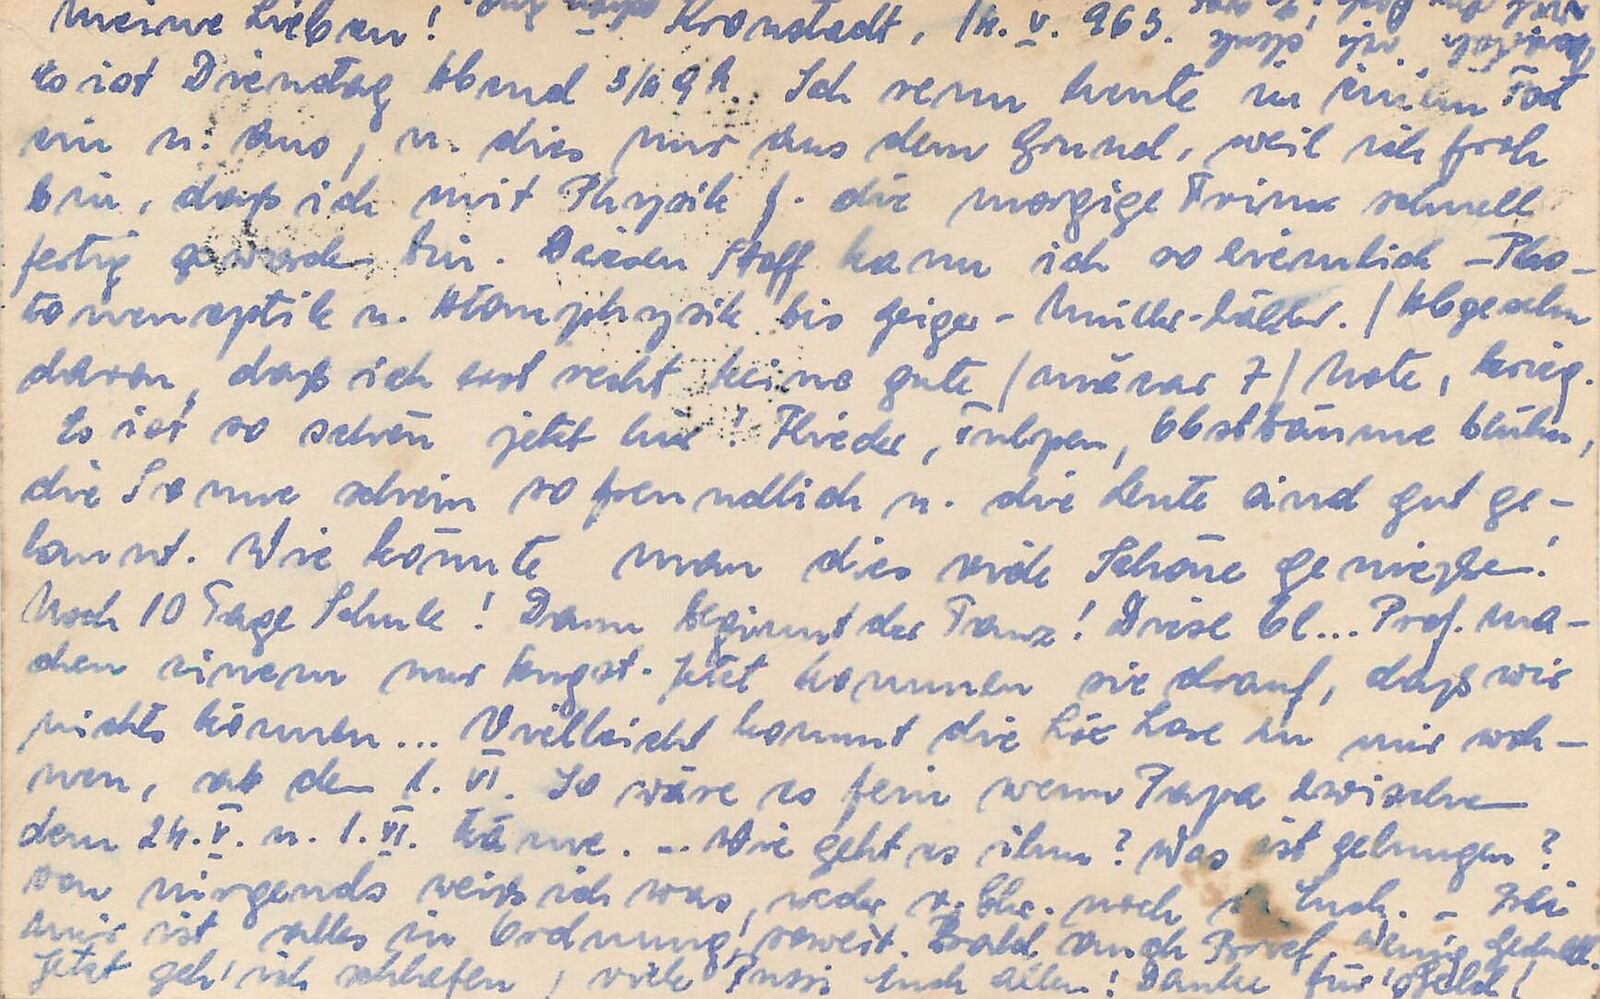 Meine Lieben! Kronstadt, 14. V. 963.
Es ist Dienstag Abend 3/4 9h. Ich renn heute in einem Tot
ein u. aus, u. dies nur aus dem Grund, weil ich froh
bin, daß ich mit Physik f. die morgige Trim schnell
fertig geworden bin. Diesen Stoff kann ich so ziemlich - Pho-
tonenoptik u. Atomphysik bis Geiger-Müller-Zähler. / Abgesehn
davon, daß ich erst recht keine gute / măcar 7 / Note, krieg.
Es ist so schön jetzt hier! Flieder, Tulpen, Obstbäume blühn,
die Sonne schein so freundlich u. die Leute sind gut ge-
launt. Wie könnte man dies viele Schöne genießen!
Noch 10 Tage Schule! Dann beginnt der Tanz! Diese bl... Prof. ma-
chen einem nur Angst. Jetzt kommen sie drauf, daß wir
nichts können... Vielleicht kommt die Lore zu mir woh-
nen, ab dem 1. VI. So wäre es fein wenn Papa zwischen
dem 24. V. u. 1. VI. käme. - Wie geht es ihm? Was ist gelungen?
von nirgends weiß ich was, weder noch Euch. - Bei
mir ist alles in Ordnung, soweit. Bald auch Brief, wenig Geduld.
Jetzt geh' ich schlafen, viele Pussi Euch allen! Danke für's Geld!